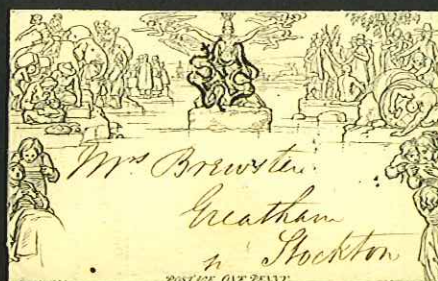 Mrs Brewster
Greatham
n Stockton
POSTAGE ONE PENNY